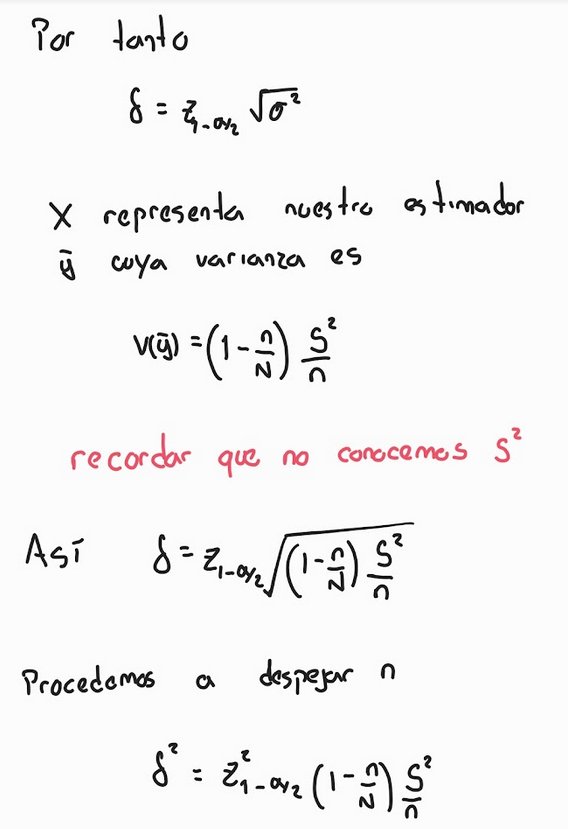 Por tanto
δ = z_{1-α/2} √σ²
X representa nuestro estimador
ȳ cuya varianza es
V(ȳ) = (1 - n/N) S²/n
recordar que no conocemos S²
Así δ = z_{1-α/2} √((1 - n/N) S²/n)
Procedemos a despejar n
δ² = z²_{1-α/2} (1 - n/N) S²/n